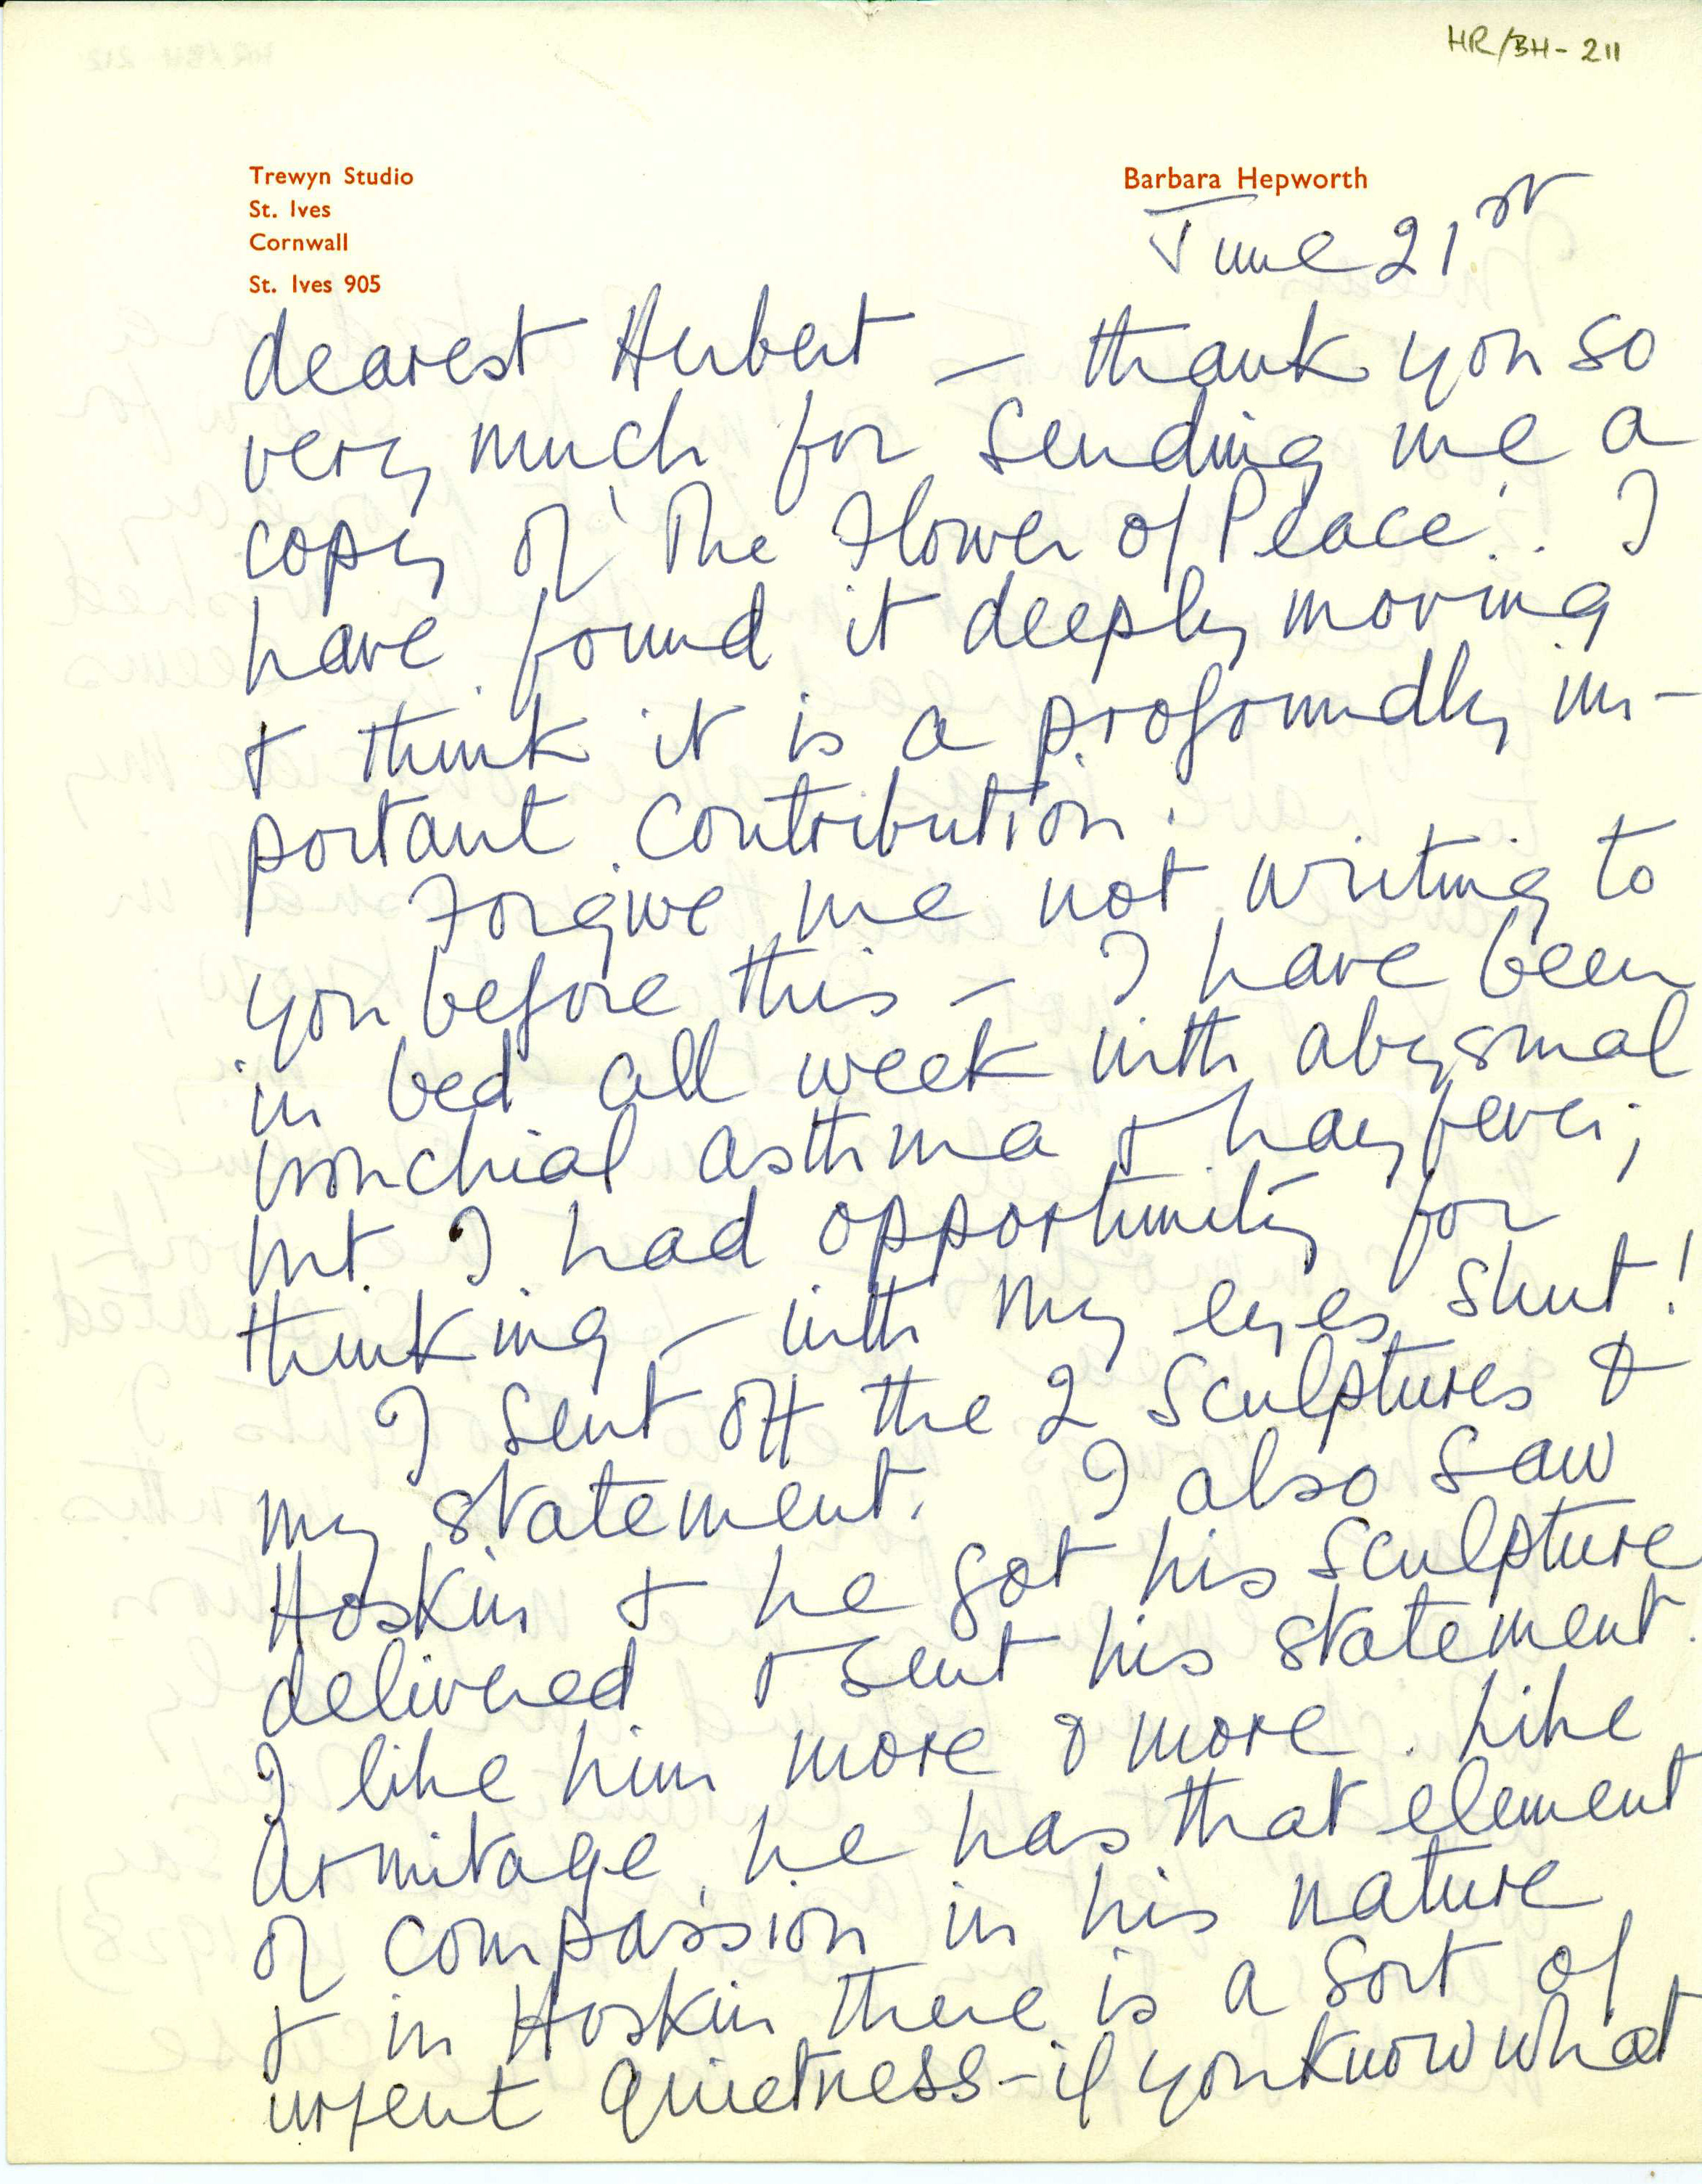 HR/BH - 211
Trewyn Studio
St. Ives
Cornwall
St. Ives 905
Barbara Hepworth
June 21st
dearest Herbert – thank you so
very much for sending me a
copy of 'The Flower of Peace'. I
have found it deeply moving
& think it is a profoundly im-
portant contribution.
Forgive me not writing to
you before this – I have been
in bed all week with abysmal
bronchial asthma & hay fever;
but I had opportunity for
thinking – with my eyes shut!
I sent off the 2 sculptures &
my statement. I also saw
Hoskin & he got his sculpture
delivered & sent his statement.
I like him more & more. Like
Armitage, he has that element
of compassion in his nature
& in Hoskin there is a sort of
urgent quietness – if you know what